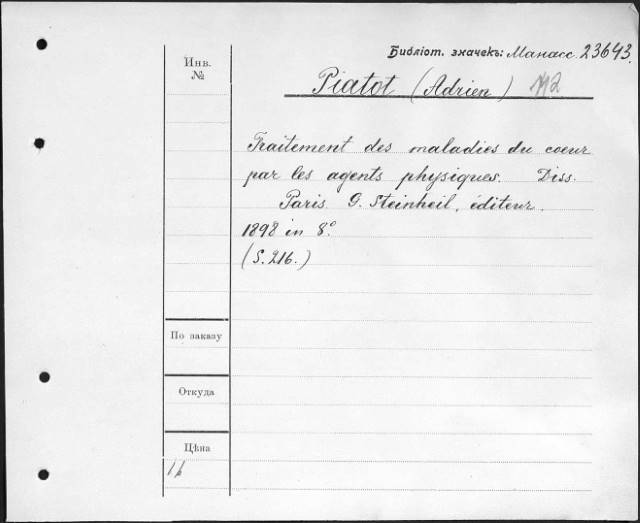 Библіот. значекъ: Манасс. 23643.
Инв.
№
Piatot (Adrien)
Traitement des maladies du coeur
par les agents physiques. Diss.
Paris. G. Steinheil, éditeur.
1898 in 8°.
(S. 216.)
По заказу
Откуда
Цѣна